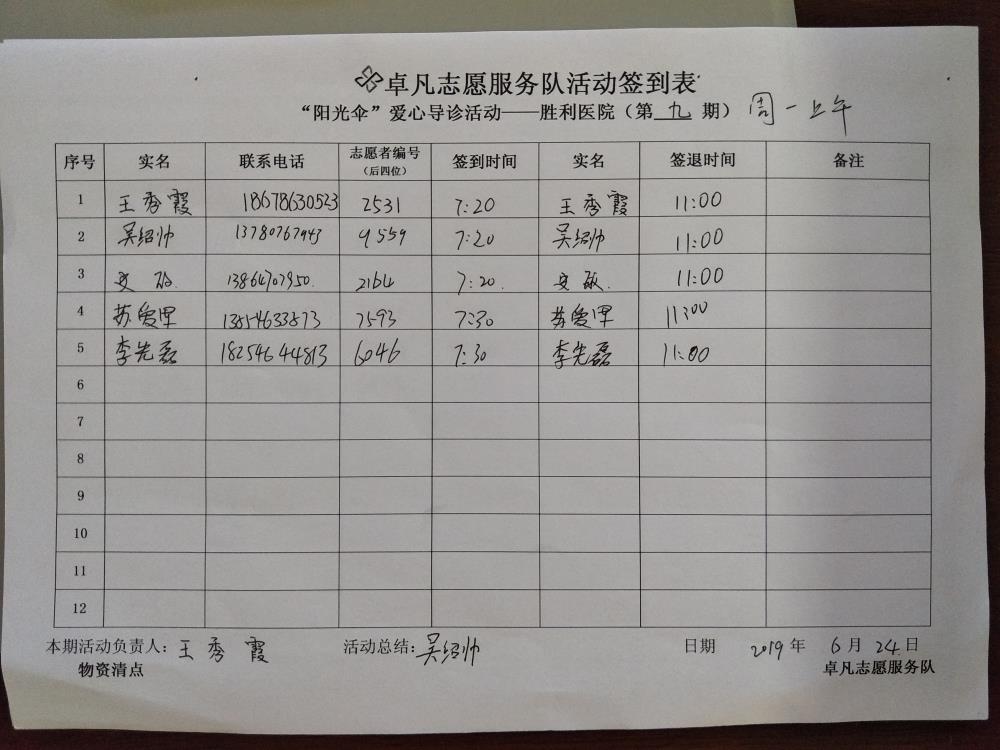 卓凡志愿服务队活动签到表
“阳光伞”爱心导诊活动——胜利医院(第 九 期) 周一上午
序号 实名 联系电话 志愿者编号(后四位) 签到时间 实名 签退时间 备注
1 王秀霞 18678630523 2531 7:20 王秀霞 11:00
2 吴绍帅 13780767943 9559 7:20 吴绍帅 11:00
3 安敏 13864707950 2164 7:20 安敏 11:00
4 苏爱军 13854633873 7593 7:30 苏爱军 11:00
5 李先磊 18254644813 6046 7:30 李先磊 11:00
6
7
8
9
10
11
12
本期活动负责人:王秀霞 活动总结:吴绍帅 日期 2019年 6月 24日
物资清点 卓凡志愿服务队